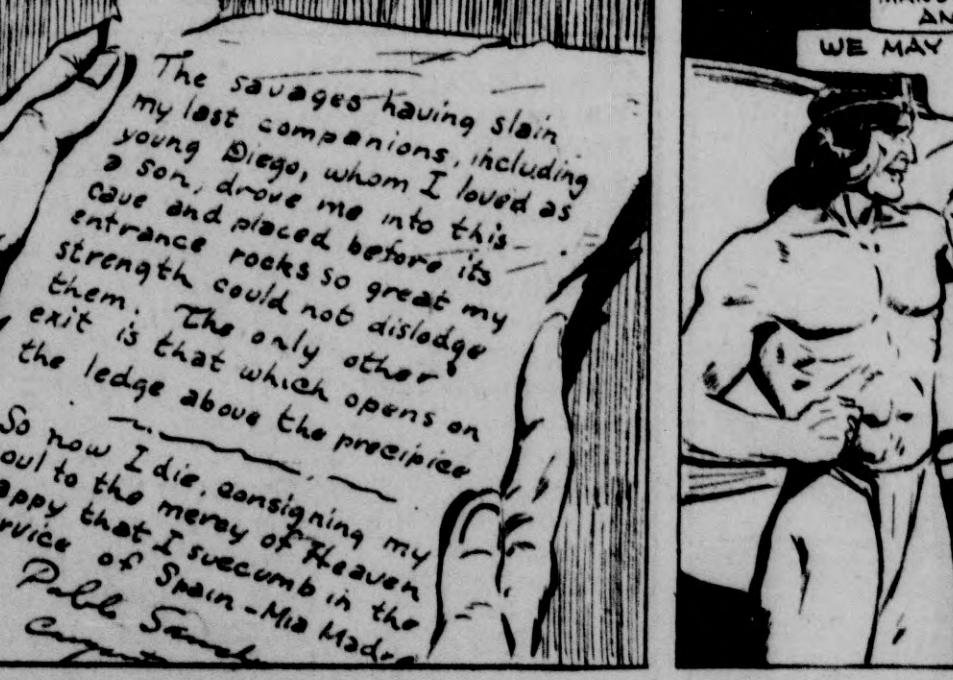 The savages having slain
my last companions, including
young Diego, whom I loved as
a son, drove me into this
cave and placed before its
entrance rocks so great my
strength could not dislodge
them. The only other
exit is that which opens on
the ledge above the precipice
So now I die, consigning my
oul to the mercy of Heaven
appy that I succumb in the
rvice of Spain-Mia Madre
Pablo
AN
WE MAY